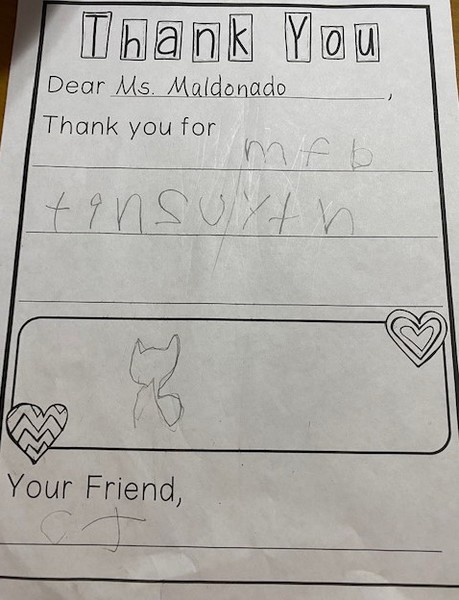 Thank You
Dear Ms. Maldonado,
Thank you for
m f b
t i n s u y t n
Your Friend,
CJ